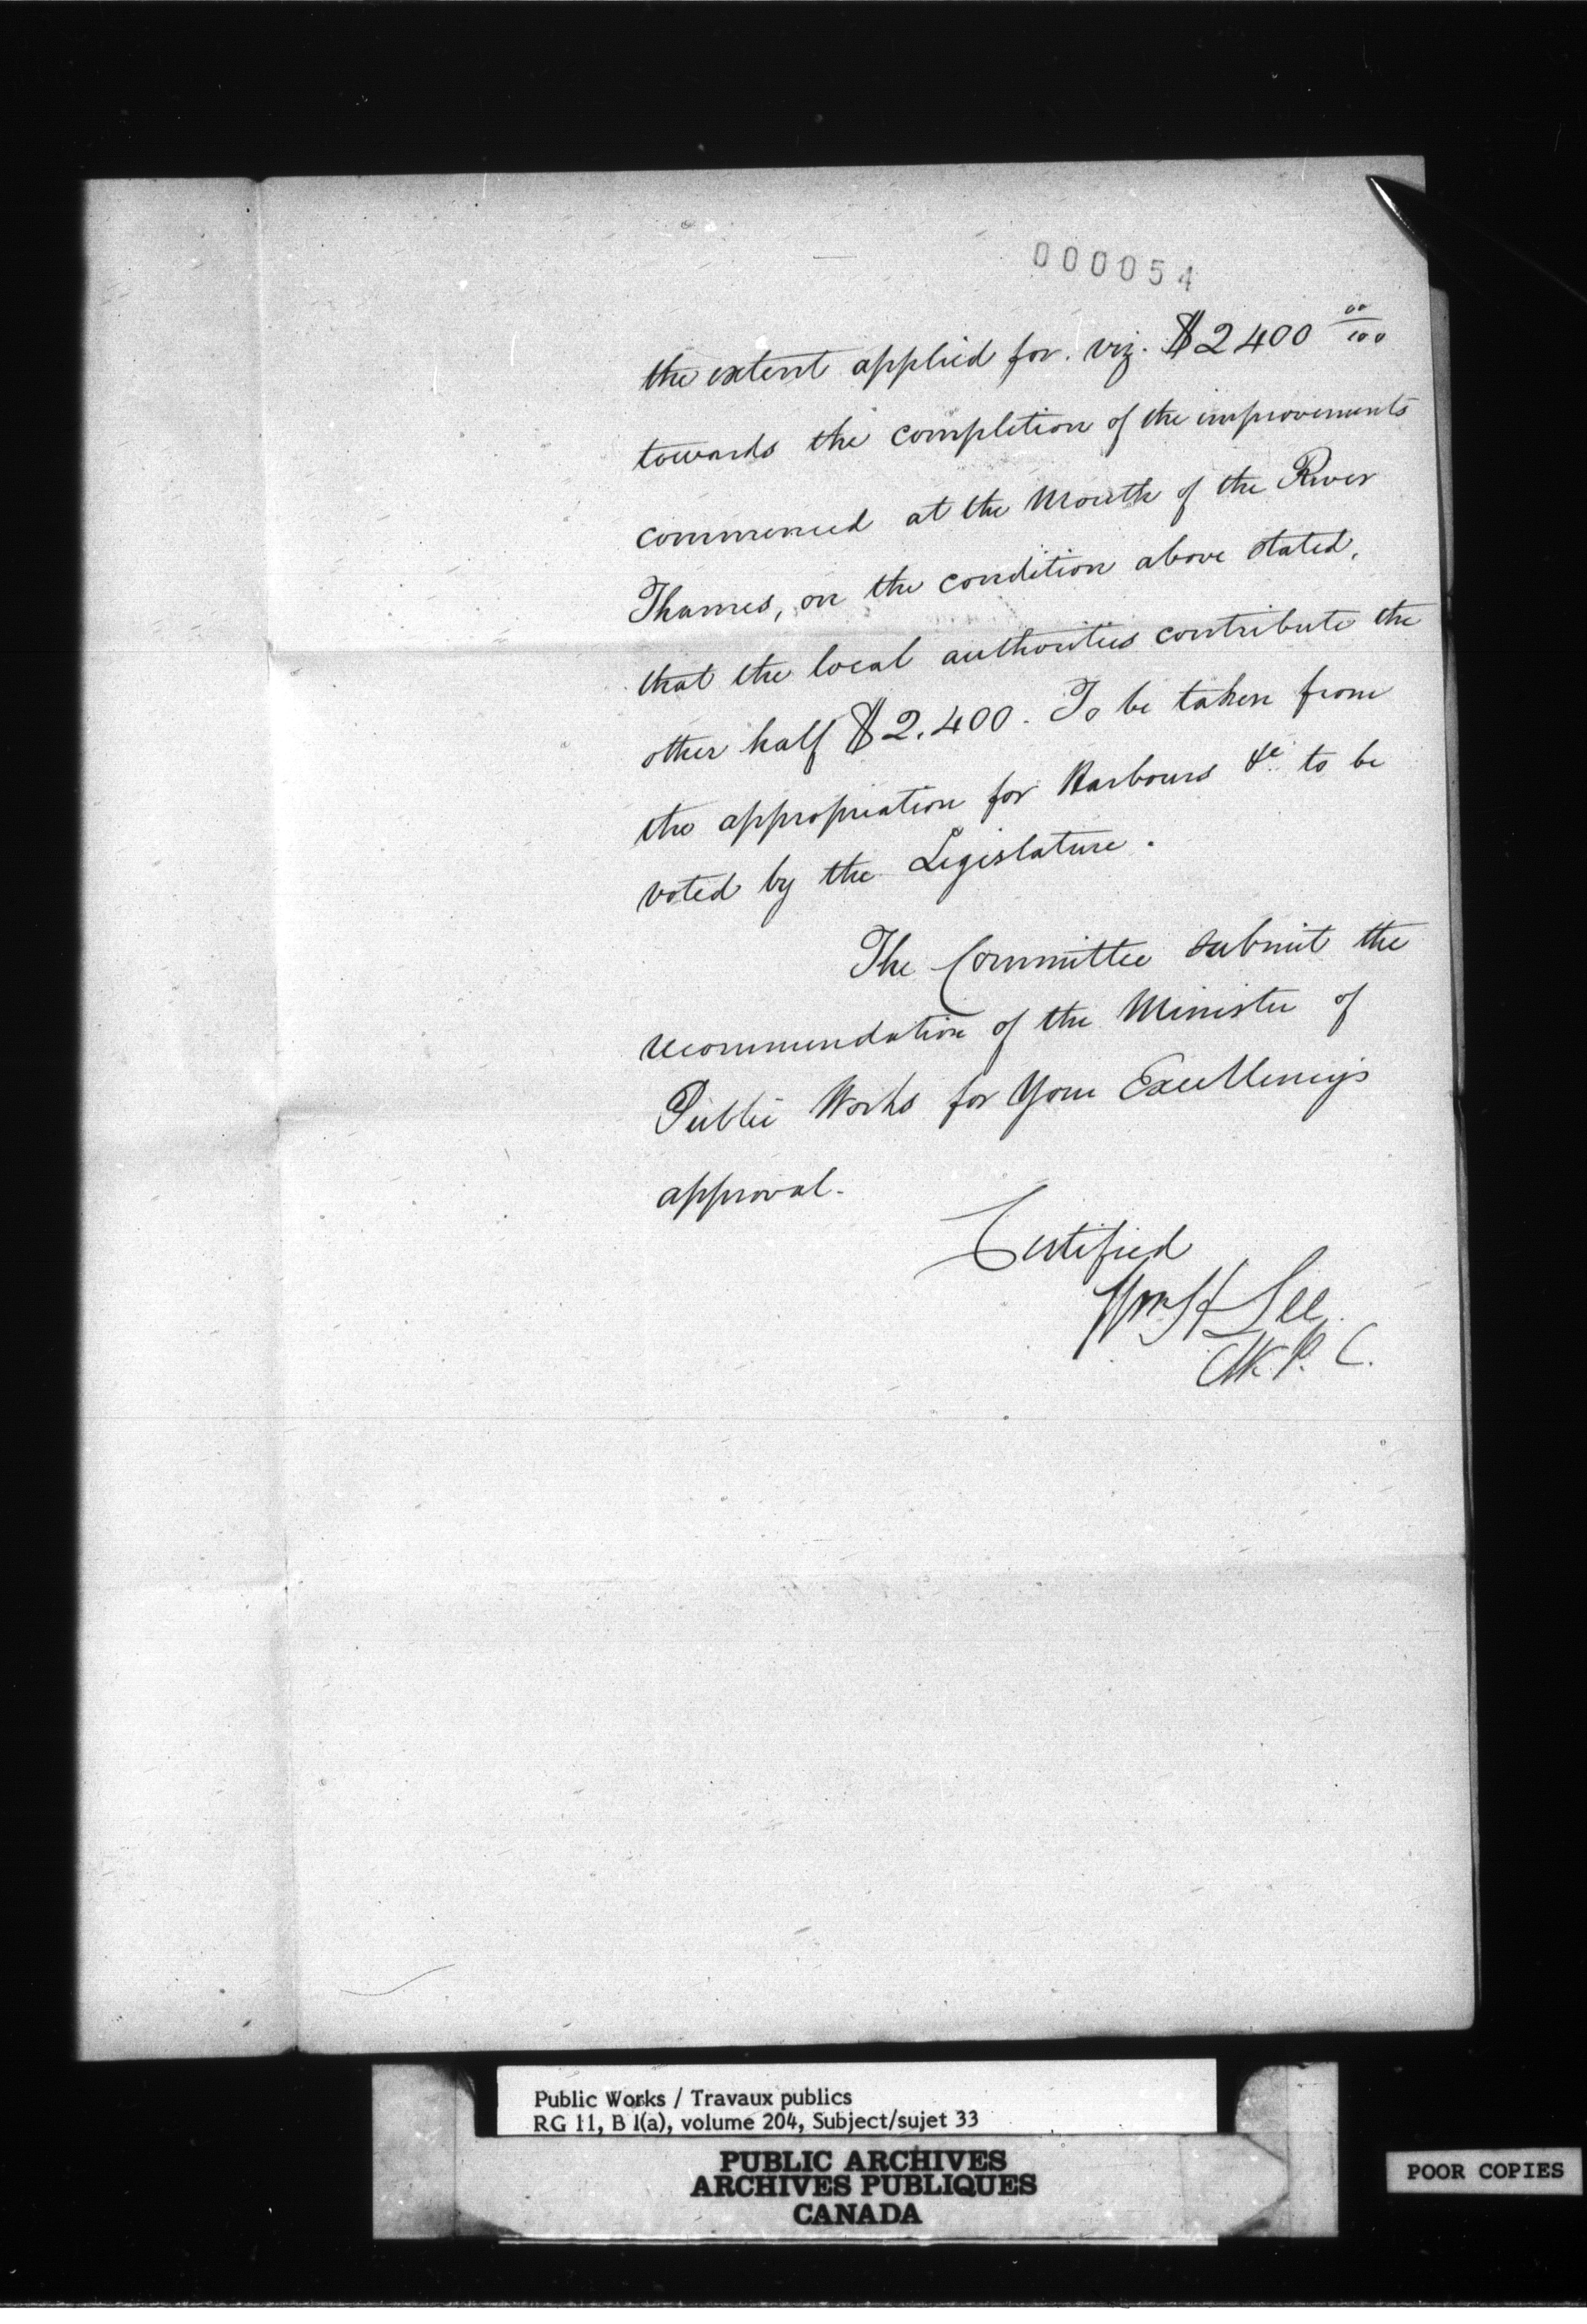 000054
the extent applied for. viz. $2400 00/100
towards the completion of the improvements
commenced at the Mouth of the River
Thames, on the condition above stated,
that the local authorities contribute the
other half $2.400. To be taken from
the appropriation for Harbours &c to be
voted by the Legislature.
The Committee submit the
recommendation of the Minister of
Public Works for Your Excellency's
approval.
Certified
Wm H Lee
Clk P. C.
Public Works / Travaux publics
RG 11, B 1(a), volume 204, Subject/sujet 33
PUBLIC ARCHIVES
ARCHIVES PUBLIQUES
CANADA
POOR COPIES